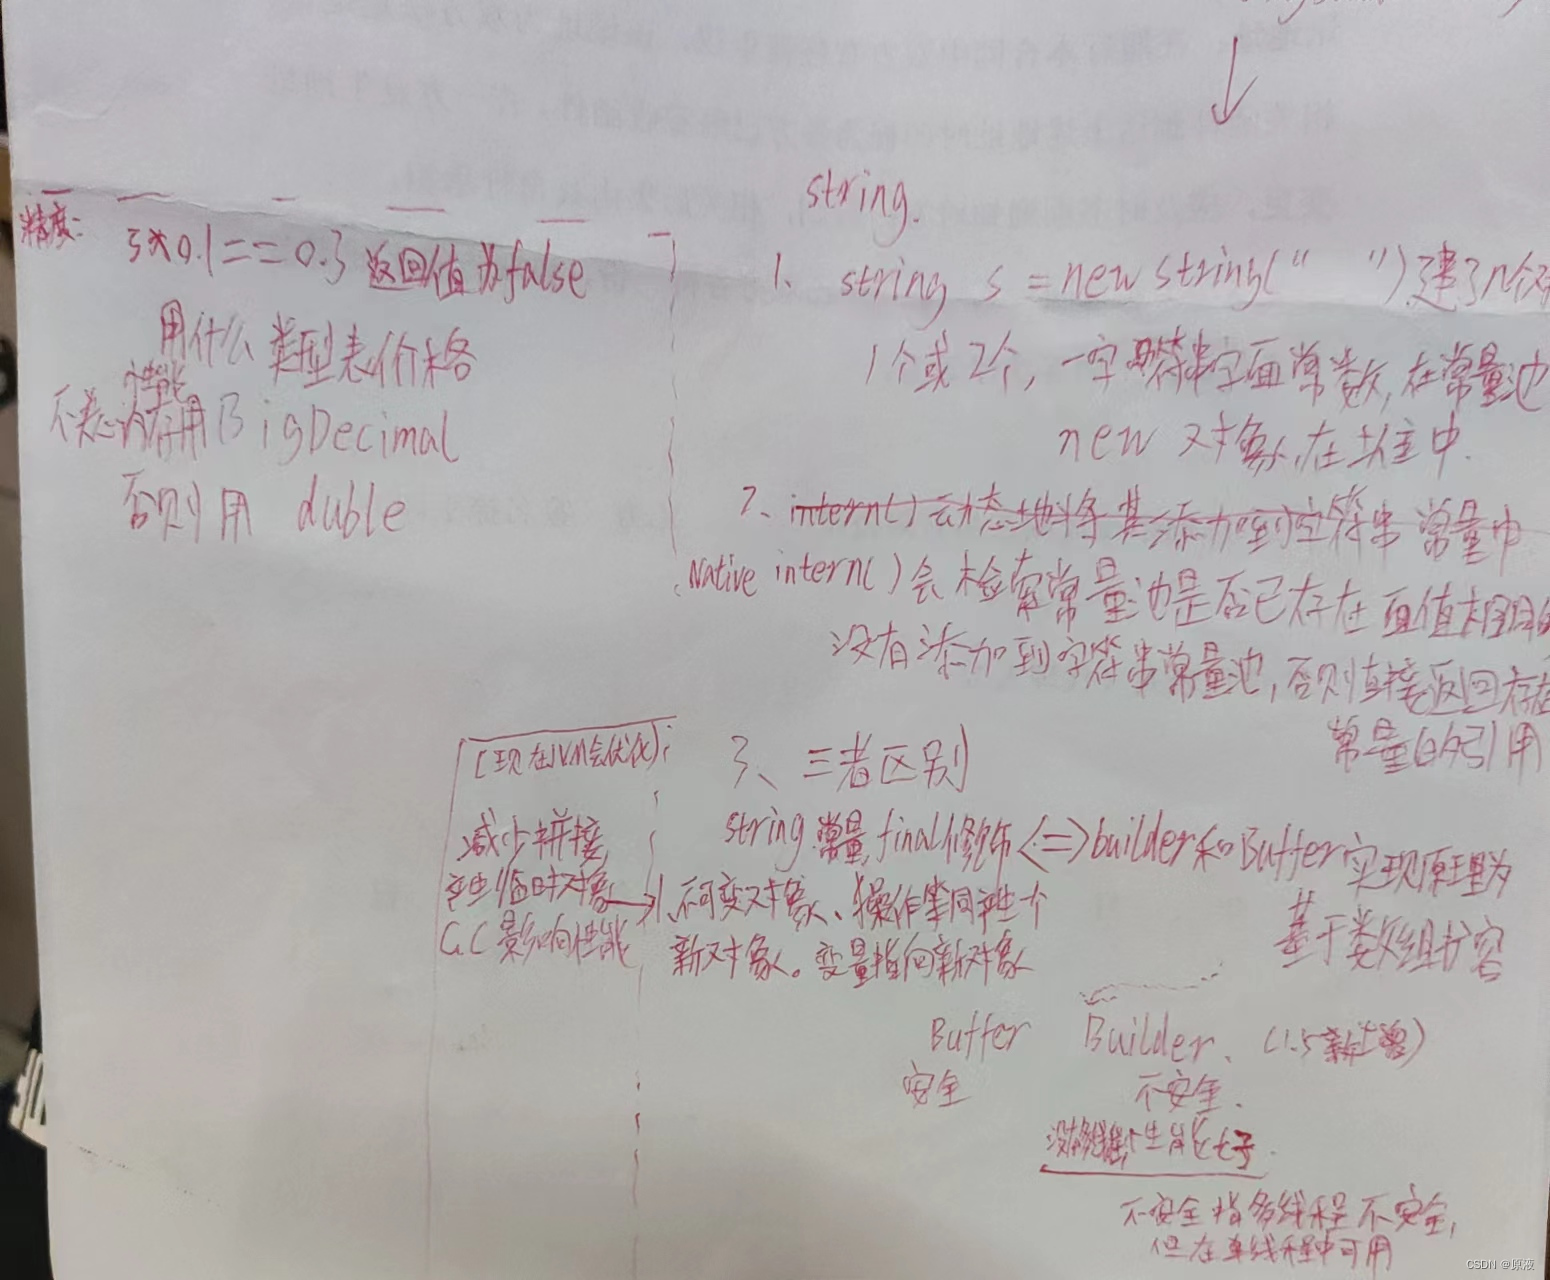 精度:
3*0.1==0.3 返回值为false
用什么类型表价格
不关心内存性能用BigDecimal
否则用 duble
string.
1、string s = new string("    ")建了几个对
1个或2个,一字符串字面常数,在常量池
new 对象,在堆中.
2、intern()会动态地将其添加到字符串常量中
Native intern()会检索常量池是否已存在 面值相同的
没有添加到字符串常量池,否则直接返回存在
常量的引用
3、三者区别
string 常量,final修饰<=>builder和Buffer实现原理为
基于数组扩容
1、不可变对象、操作等同产生个
新对象。变量指向新对象
(现在JVM会优化)
减少拼接,
产生临时对象
GC影响性能
Buffer    Builder、(1.5新增)
安全    不安全.
性能好.
不安全指多线程不安全,
但在单线程中可用
CSDN @原液